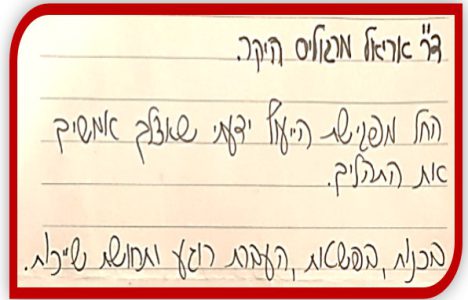 ד״ר אריאל מרגוליס היקר.
החל מפגישת הייעוץ ידעתי שאצלך אמשיך
את התהליך.
בכנות, בפשטות, העברת רוגע ותחושת שייכות.